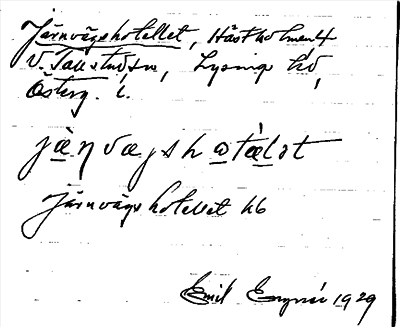 Järnvägshotellet, Hästholmen
V. Tollstads sn, Lysings hd,
Österg. l.
jä̀ɳvægshωtæ̀lət
Järnvägshotellet hb
Emil 1929